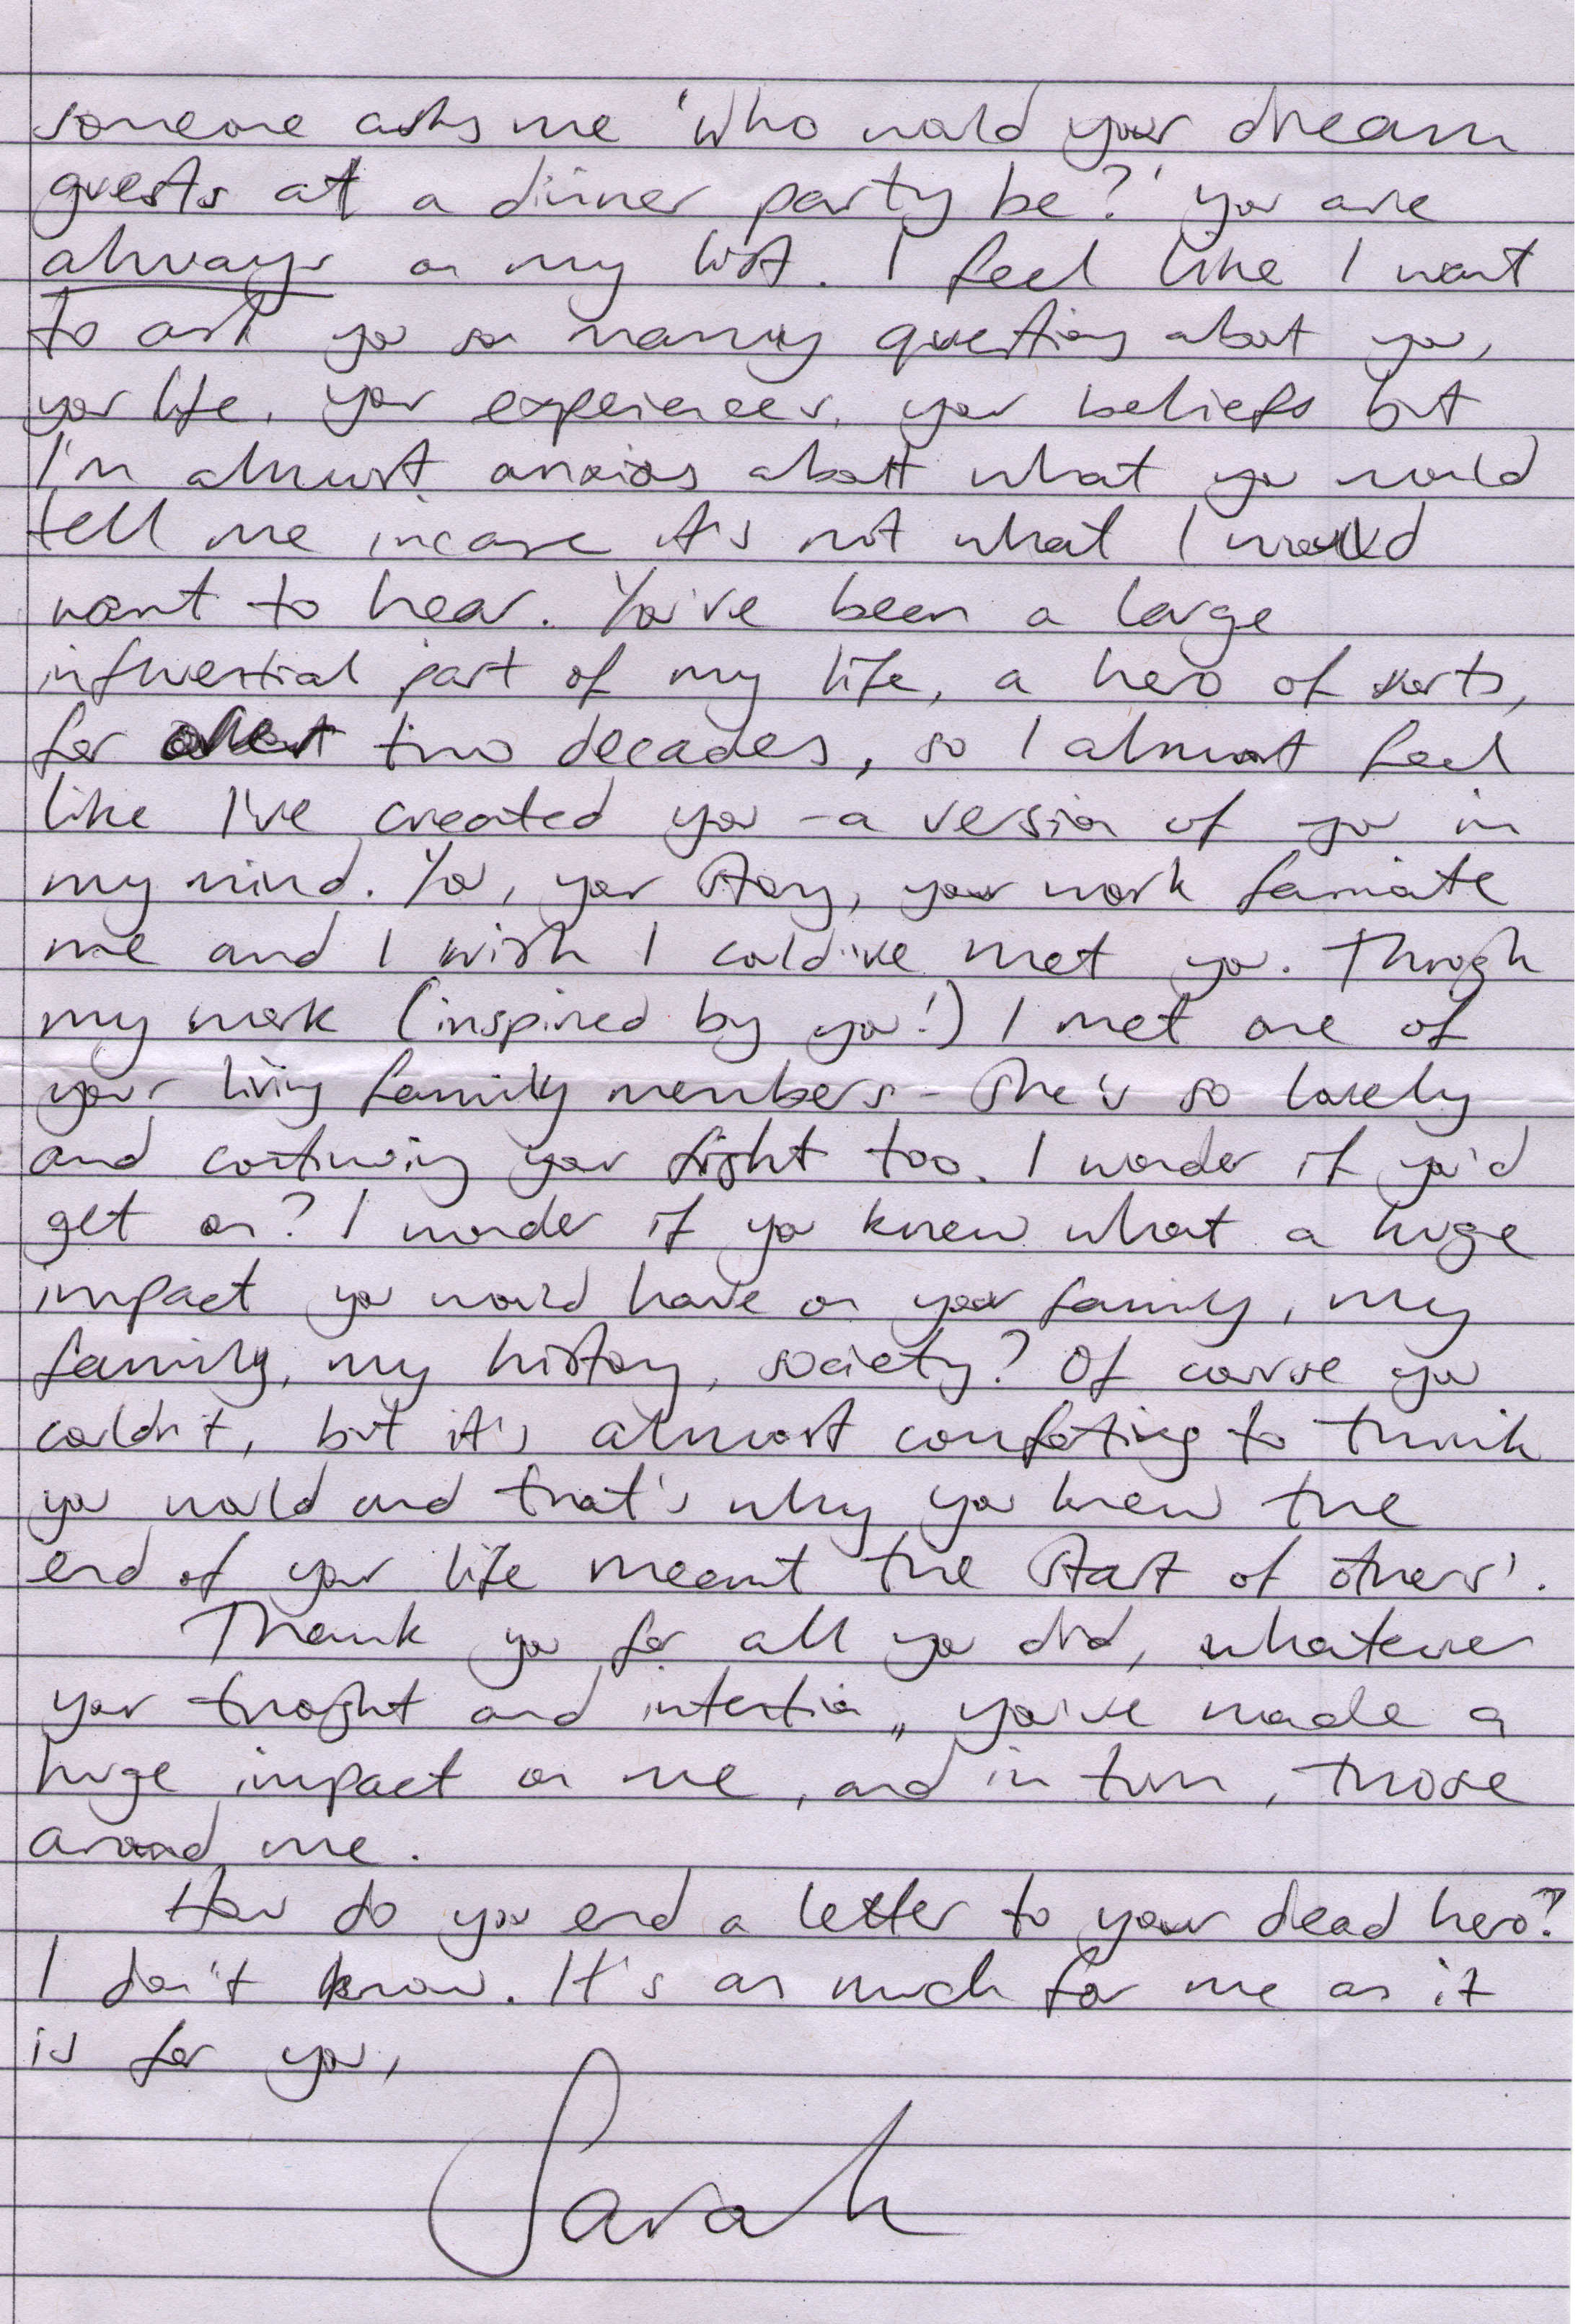 someone asks me 'who would your dream
guests at a dinner party be?' you are
always on my list. I feel like I want
to ask you so many questions about you,
your life, your experiences, your beliefs but
I'm almost anxious about what you would
tell me incase it's not what I would
want to hear. You've been a large
influential part of my life, a hero of sorts,
for about two decades, so I almost feel
like I've created you - a version of you in
my mind. You, your story, your work fascinate
me and I wish I could've met you. Through
my work (inspired by you!) I met one of
your living family members - she's so lovely
and continuing your fight too. I wonder if you'd
get on? I wonder if you knew what a huge
impact you would have on your family, my
family, my history, society? Of course you
couldn't, but it's almost comforting to think
you would and that's why you knew the
end of your life meant the start of others'.
Thank you for all you did, whatever
your thought and intention, you've made a
huge impact on me, and in turn, those
around me.
How do you end a letter to your dead hero?
I don't know. It's as much for me as it
is for you,
Sarah